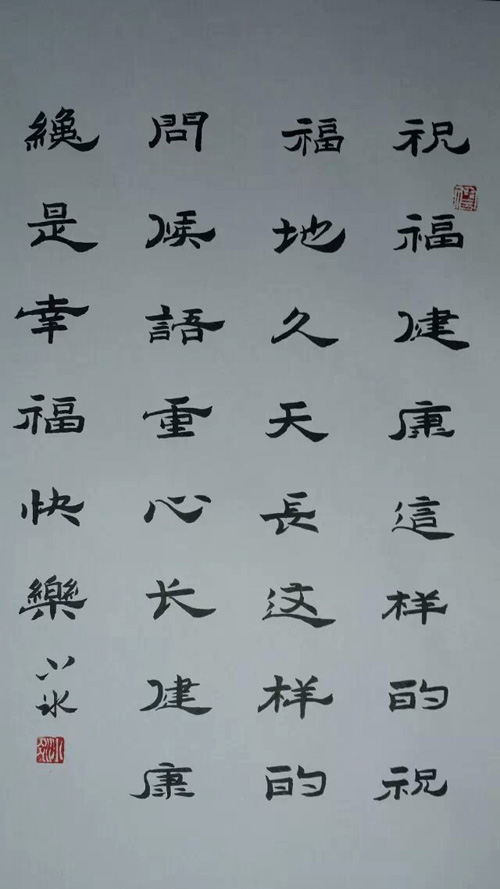 祝福健康這样的祝
福地久天長这样的
問候語重心长健康
纔是幸福快樂
小冰